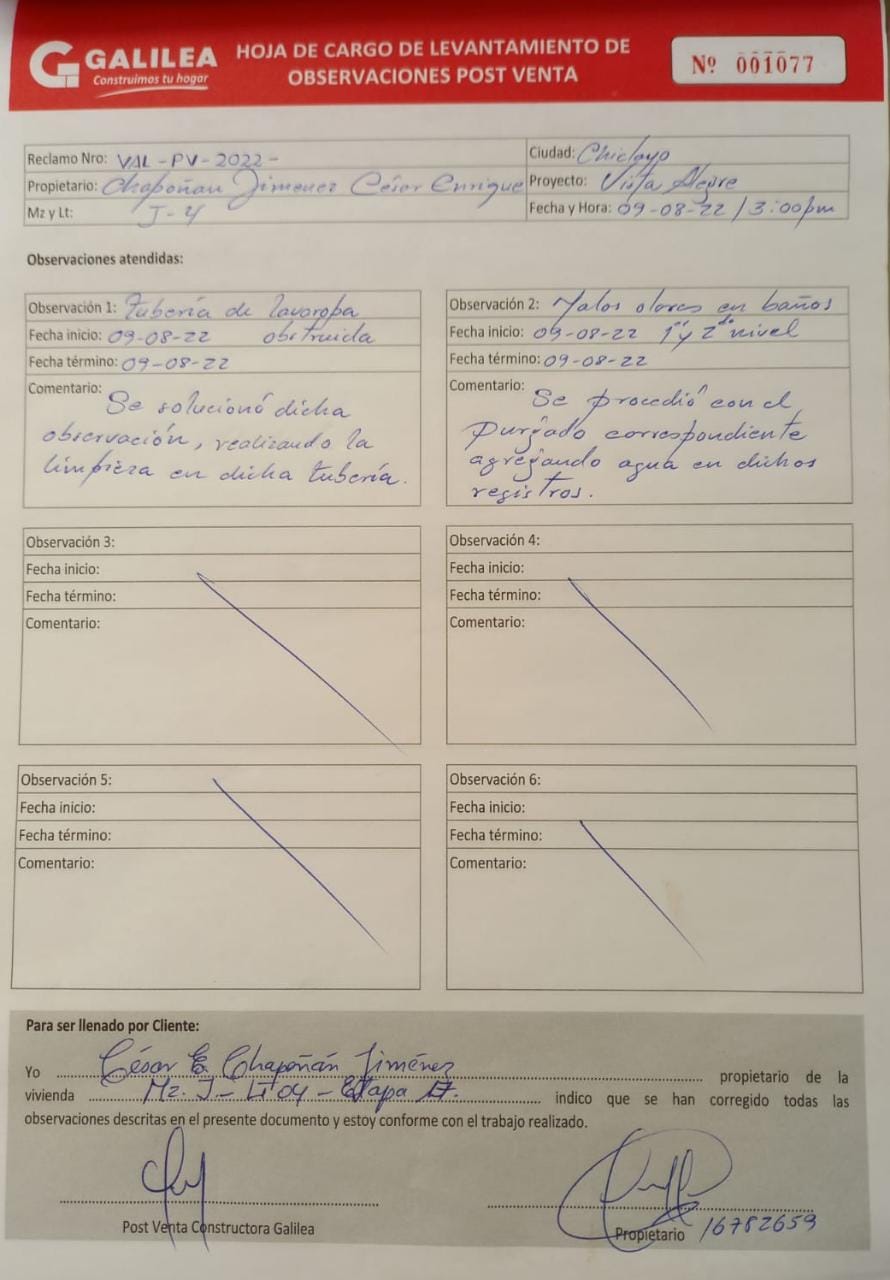 GALILEA
Construimos tu hogar
HOJA DE CARGO DE LEVANTAMIENTO DE
OBSERVACIONES POST VENTA
Nº 001077
Reclamo Nro: VAL-PV-2022-
Ciudad: Chiclayo
Propietario: Chapoñan Jimenez César Enrique
Proyecto: Vista Alegre
Mz y Lt: J-4
Fecha y Hora: 09-08-22 / 3:00pm
Observaciones atendidas:
Observación 1: Tubería de lavaropa
Fecha inicio: 09-08-22 obstruida
Fecha término: 09-08-22
Comentario: Se solucionó dicha
observación, realizando la
limpieza en dicha tubería.
Observación 2: Malos olores en baños
Fecha inicio: 09-08-22 1º y 2do nivel
Fecha término: 09-08-22
Comentario: Se procedió con el
purgado correspondiente
agregando agua en dichos
registros.
Observación 3:
Fecha inicio:
Fecha término:
Comentario:
Observación 4:
Fecha inicio:
Fecha término:
Comentario:
Observación 5:
Fecha inicio:
Fecha término:
Comentario:
Observación 6:
Fecha inicio:
Fecha término:
Comentario:
Para ser llenado por Cliente:
Yo César E. Chapoñán Jiménez propietario de la
vivienda Mz. J - Lt 04 - Etapa indico que se han corregido todas las
observaciones descritas en el presente documento y estoy conforme con el trabajo realizado.
Post Venta Constructora Galilea
Propietario 16782659